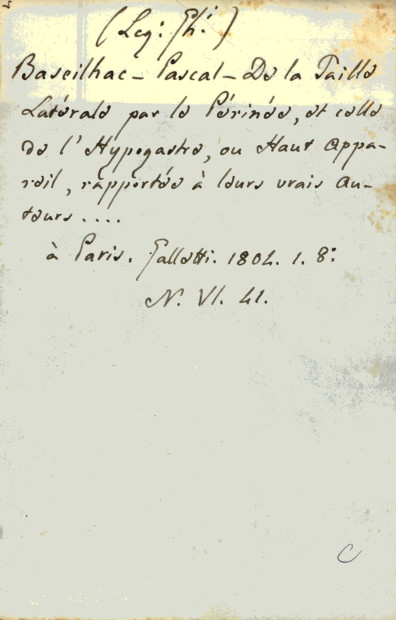 (Leg: Gh:)
Baseilhac - Pascal - De la Taille
Latérale par le Périnée, et celle
de l'Hypogastre, ou Haut Appa-
reil, rapportée à leurs vrais au-
teurs ....
à Paris. Gallotti. 1804. 1. 8:
N. VI. 41.
C